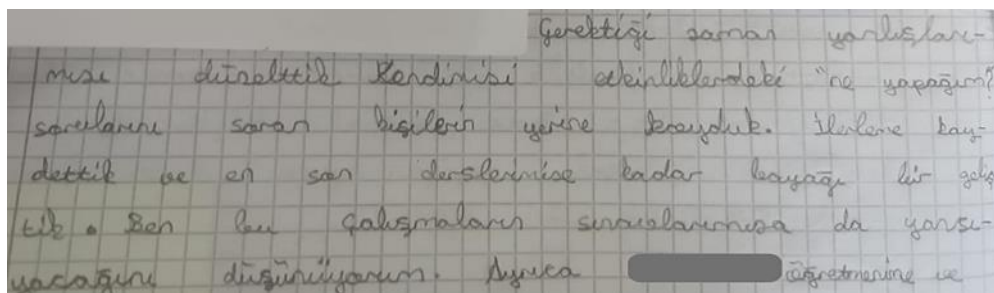 Gerektiği zaman yanlışları-
mızı düzelttik kendimizi etkinliklerdeki "ne yapayım?
sorularını soran kişilerin yerine koyduk. İlerleme kay-
dettik ve en son derslerimize kadar bayağı bir geliş
tik. Ben bu çalışmaların sınavlarımıza da yansı-
yacağını düşünüyorum. Ayrıca öğretmenime ve